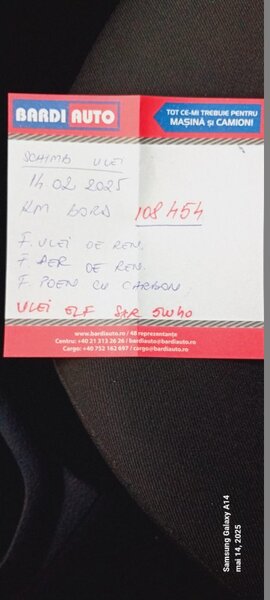 BARDI AUTO
TOT CE-MI TREBUIE PENTRU
MAȘINĂ și CAMION!
SCHIMB ULEI
14 02 2025
KM BORD 108 454
F. ULEI DE REN.
F. AER DE REN.
F. POLEN CU CARBON
ULEI ELF 5W40
www.bardiauto.ro / 48 reprezentanțe
Centru: +40 21 313 26 26 / bardiauto@bardiauto.ro
Cargo: +40 732 162 697 / cargo@bardiauto.ro
Samsung Galaxy A14
mai 14, 2025